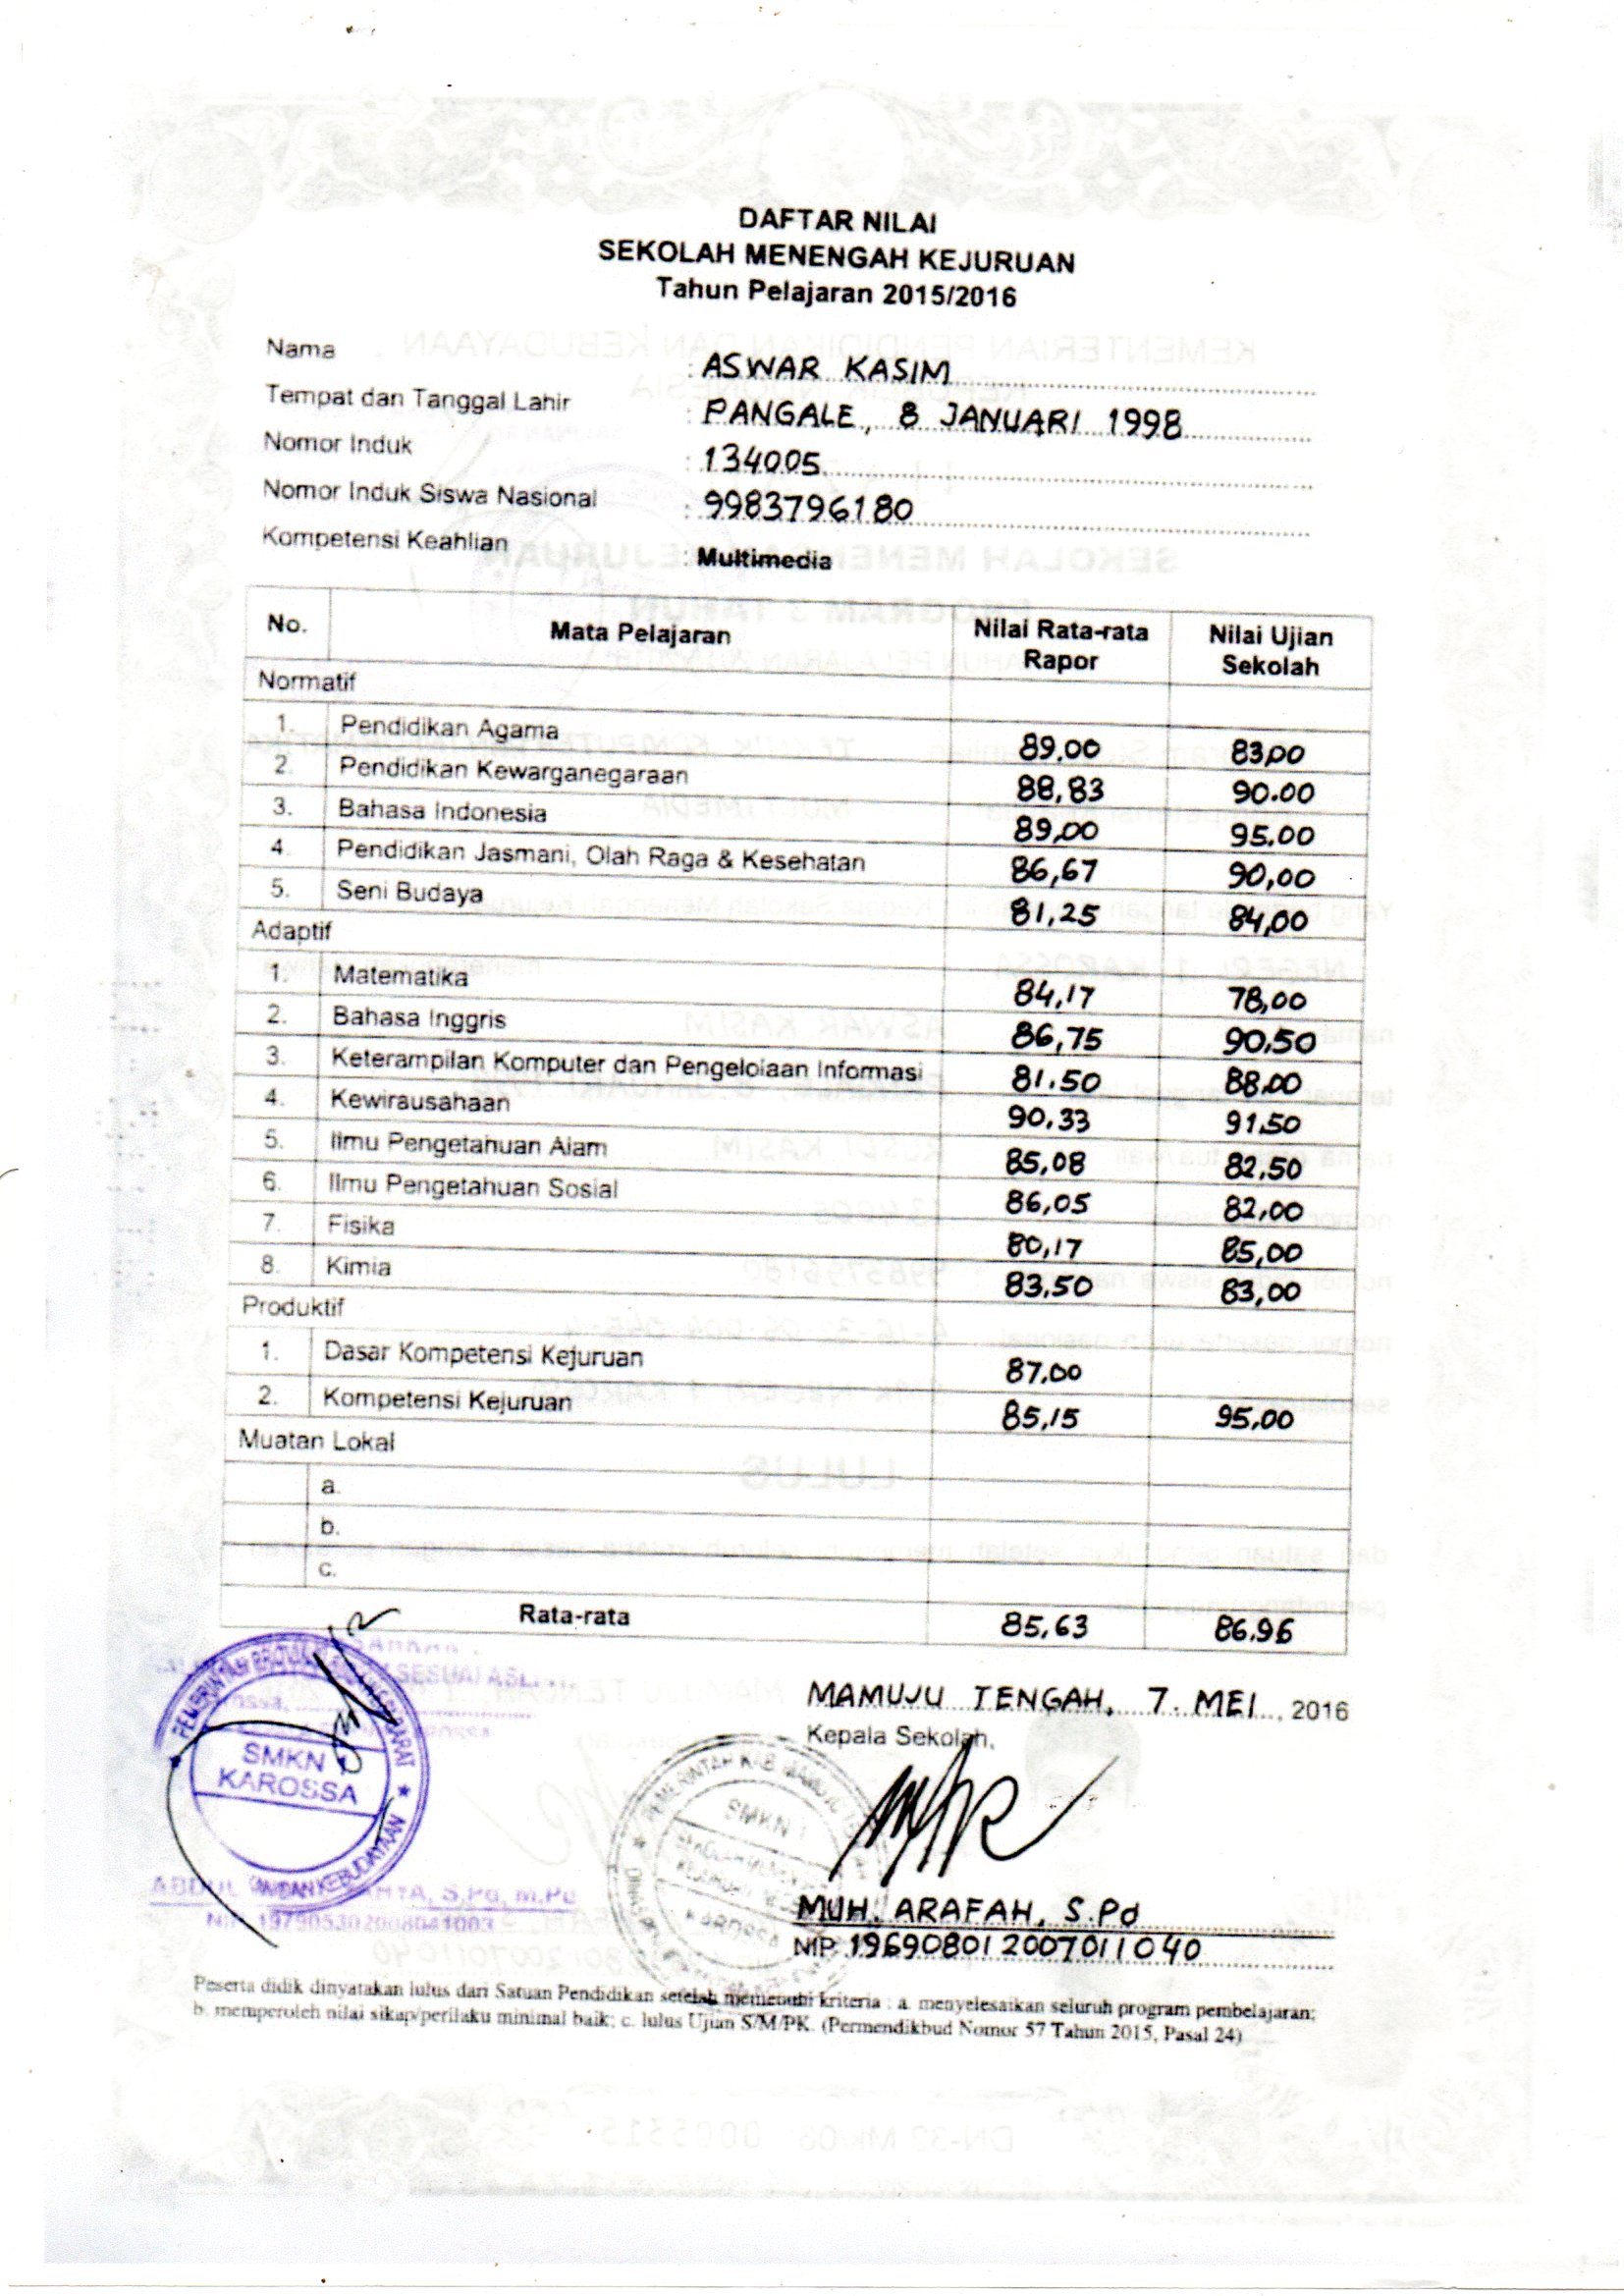 DAFTAR NILAI
SEKOLAH MENENGAH KEJURUAN
Tahun Pelajaran 2015/2016
Nama : ASWAR KASIM
Tempat dan Tanggal Lahir : PANGALE, 8 JANUARI 1998
Nomor Induk : 134005
Nomor Induk Siswa Nasional : 9983796180
Kompetensi Keahlian : Multimedia
No. Mata Pelajaran Nilai Rata-rata Rapor Nilai Ujian Sekolah
Normatif
1. Pendidikan Agama 89.00 83,00
2. Pendidikan Kewarganegaraan 88,83 90.00
3. Bahasa Indonesia 89,00 95.00
4. Pendidikan Jasmani, Olah Raga & Kesehatan 86,67 90,00
5. Seni Budaya 81,25 84,00
Adaptif
1. Matematika 84,17 78,00
2. Bahasa Inggris 86,75 90,50
3. Keterampilan Komputer dan Pengelolaan Informasi 81.50 88.00
4. Kewirausahaan 90,33 91,50
5. Ilmu Pengetahuan Alam 85,08 82,50
6. Ilmu Pengetahuan Sosial 86,05 82,00
7. Fisika 80,17 85,00
8. Kimia 83,50 83,00
Produktif
1. Dasar Kompetensi Kejuruan 87.00
2. Kompetensi Kejuruan 85,15 95,00
Muatan Lokal
a.
b.
c.
Rata-rata 85,63 86.96
SESUAI ASLI
MAMUJU TENGAH, 7. MEI, 2016
Kepala Sekolah,
SMKN 1
KAROSSA
SMKN 1
KAROSSA
MUH. ARAFAH, S.Pd
NIP. 196908012007011040
S.Pd, M.Pd
NIP. 197905302008041003
Peserta didik dinyatakan lulus dari Satuan Pendidikan setelah memenuhi kriteria : a. menyelesaikan seluruh program pembelajaran;
b. memperoleh nilai sikap/perilaku minimal baik; c. lulus Ujian S/M/PK. (Permendikbud Nomor 57 Tahun 2015, Pasal 24)